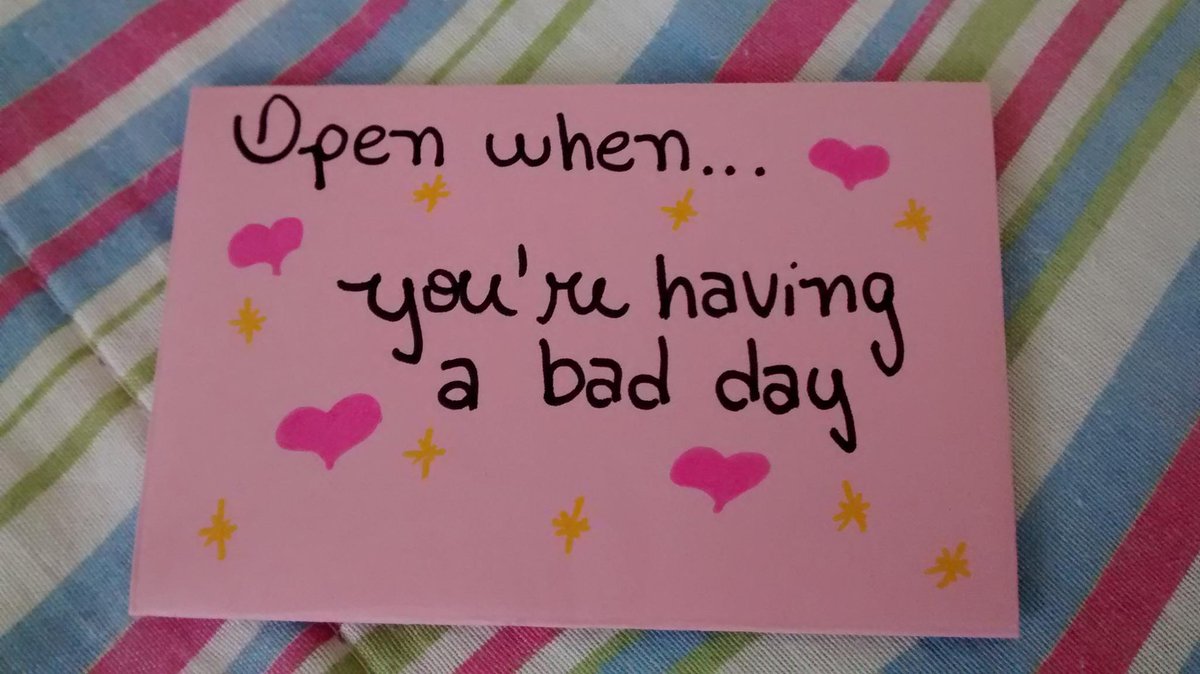 Open when...
you're having
a bad day